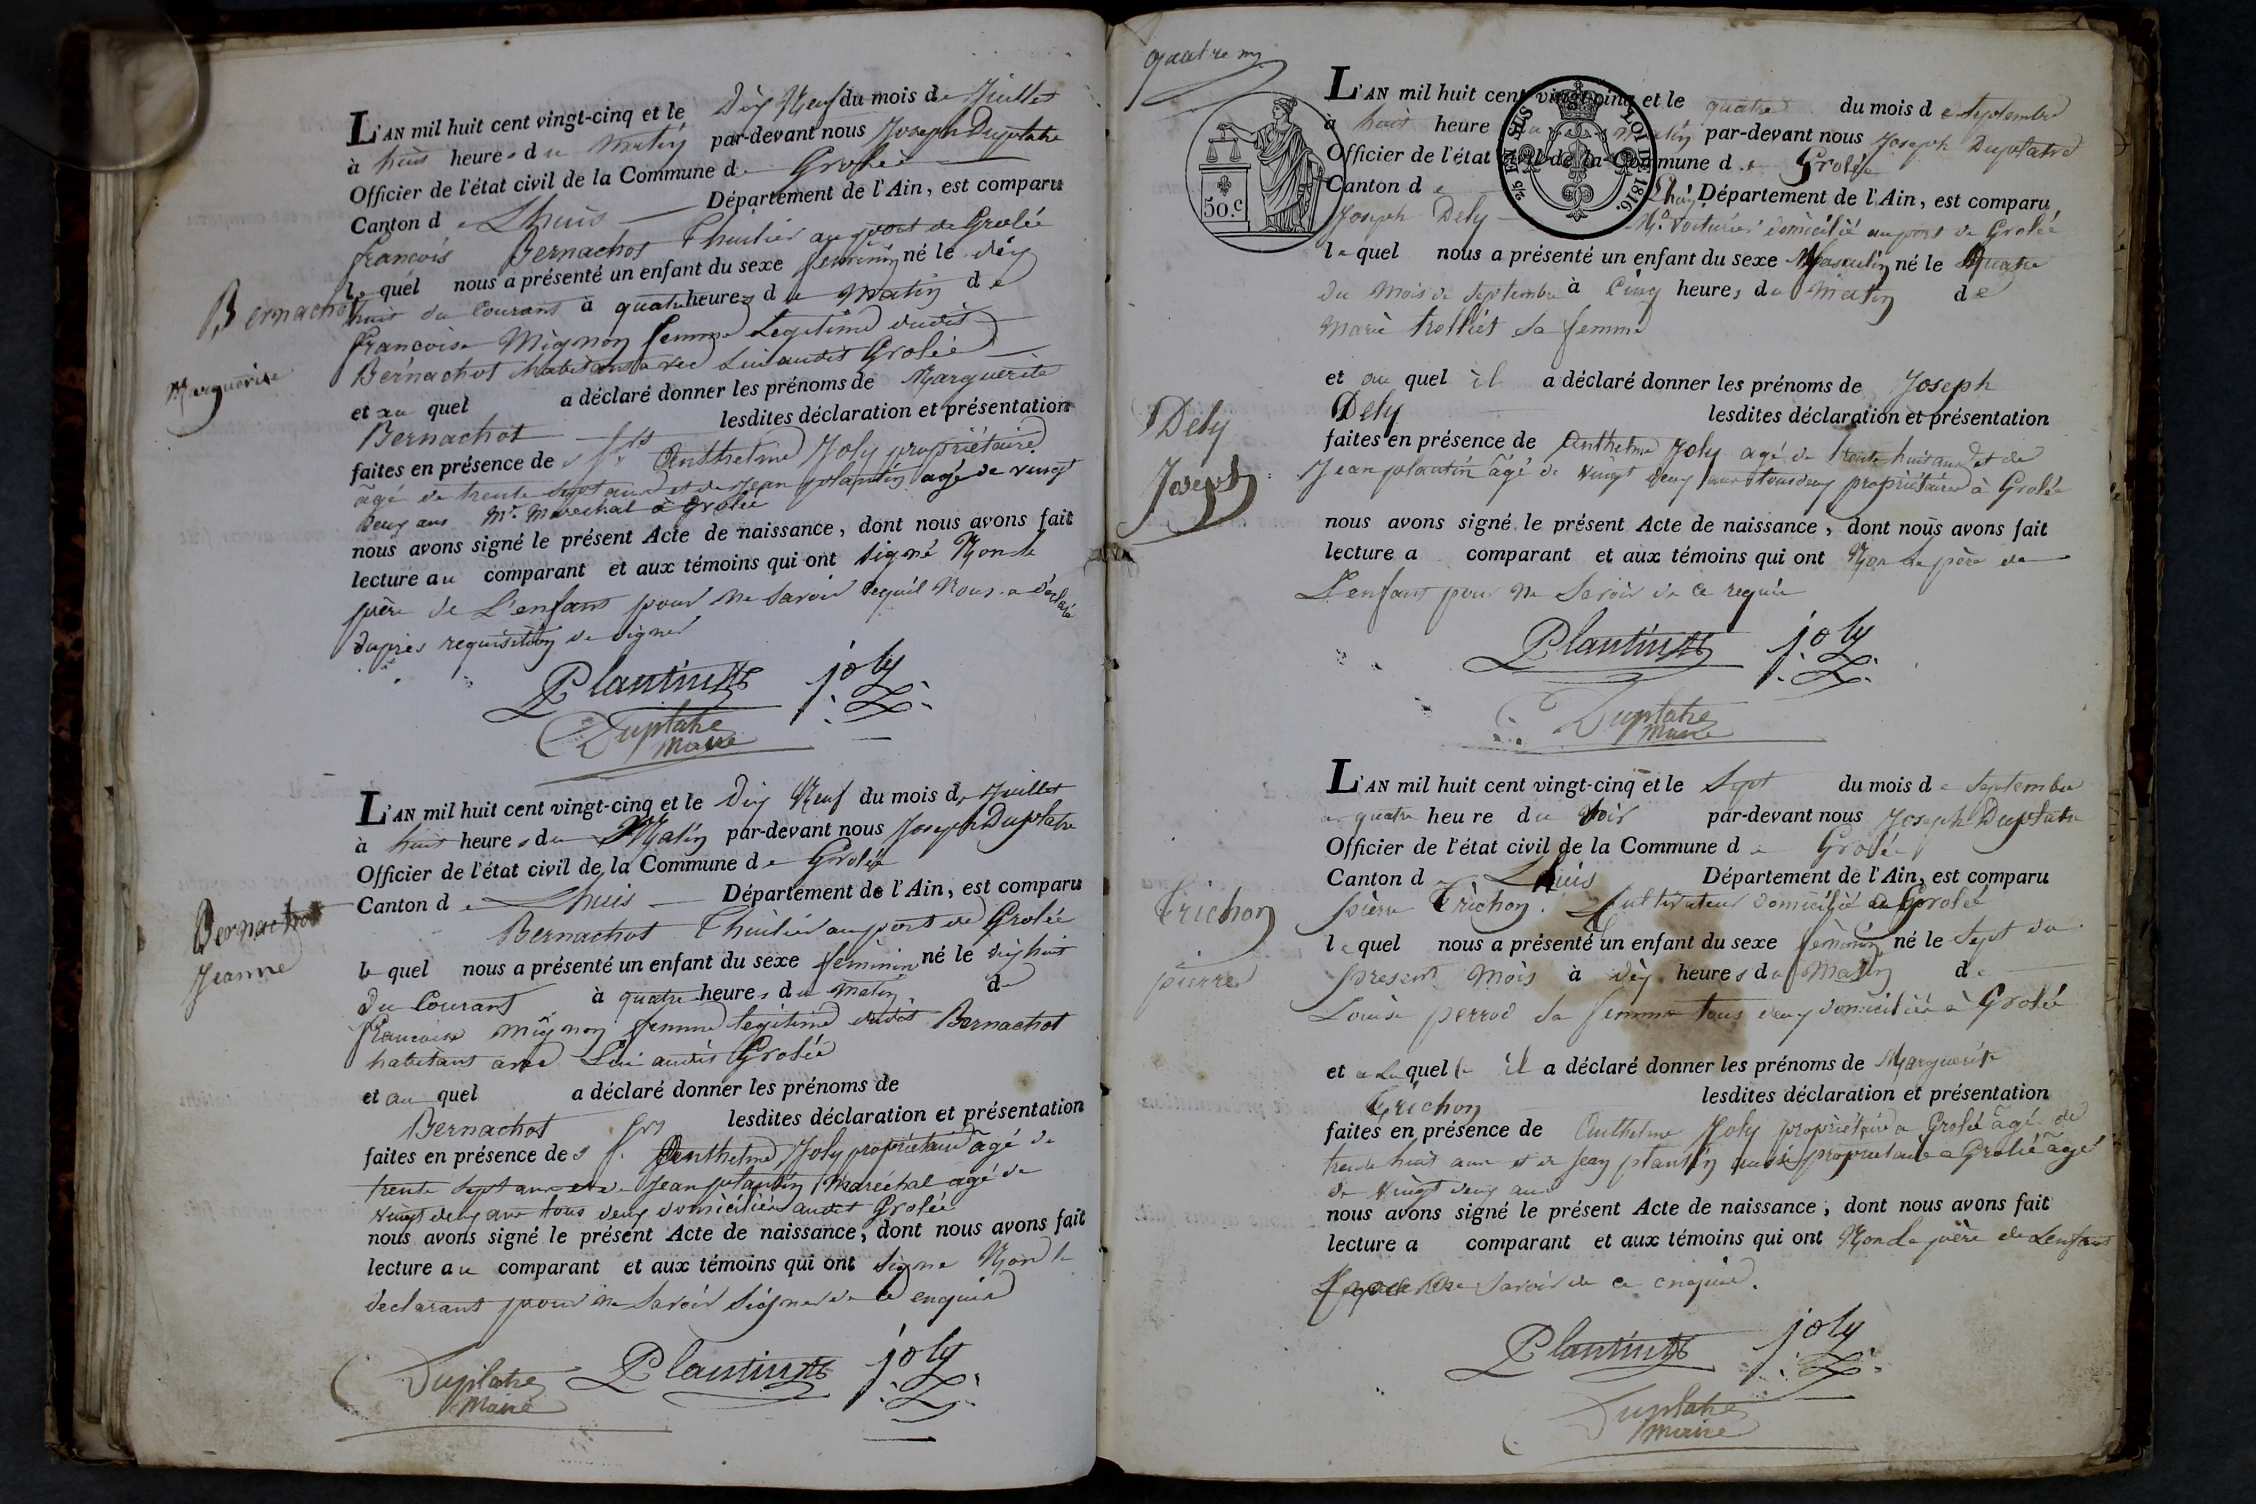 L'AN mil huit cent vingt-cinq et le Dix Neuf du mois de Juillet
à huit heures du Matin par-devant nous Joseph Duplatre
Officier de l'état civil de la Commune de Grolée
Canton de Lhuis Département de l'Ain, est comparu
françois Bernachot Thuilier au port de Grolée
le quel nous a présenté un enfant du sexe feminin né le dix
huit du Courant à quatre heures du Matin de
Francoise Mignon femme Legitime dudit
Bernachot habitant avec Lui audit Grolée
Bernachot
Marguerite
et au quel a déclaré donner les prénoms de Marguerite
Bernachot lesdites déclaration et présentation
faites en présence des srs Anthelme Joly propriétaire
agé de trente Sept ans et de Jean plantin agé de vingt
Deux ans Mr. Marechal à Grolée
nous avons signé le présent Acte de naissance, dont nous avons fait
lecture au comparant et aux témoins qui ont signé Non le
père de L'enfant pour ne Savoir Nous a déclaré
dupres requisition de signer
Plantin joly
Duplatre
Maire
L'AN mil huit cent vingt-cinq et le Dix Neuf du mois de Juillet
à huit heures du Matin par-devant nous Joseph Duplatre
Officier de l'état civil de la Commune de Grolée
Canton de Lhuis Département de l'Ain, est comparu
Bernachot Thuilier au port de Grolée
le quel nous a présenté un enfant du sexe féminin né le dix huit
Du Courant à quatre heures du matin de
Francoise mignon femme legitime dudit Bernachot
habitant avec Lui audit Grolée
Bernachot
Jeanne
et au quel a déclaré donner les prénoms de
Bernachot lesdites déclaration et présentation
faites en présence des srs Anthelme Joly propriétaire agé de
trente Sept ans et de Jean plantin Maréchal agé de
vingt deux ans tous deux domiciliés audit Grolée
nous avons signé le présent Acte de naissance, dont nous avons fait
lecture au comparant et aux témoins qui ont signe Non le
declarant pour ne Savoir Signer de ce enquis
Duplatre Plantin joly
Maire
quatre
50.C
EN SUS LOI DE 1816.
L'AN mil huit cent vingt-cinq et le quatre du mois de Septembre
à huit heure du Matin par-devant nous Joseph Duplatre
Officier de l'état civil de la Commune de Grolée
Canton de Lhuis Département de l'Ain, est comparu
Joseph Dely Md. Voiturier domicilié au port de Grolée
le quel nous a présenté un enfant du sexe Masculin né le Quatre
du Mois de Septembre à Cinq heures du Matin de
Marie trolliet sa femme
et au quel il a déclaré donner les prénoms de Joseph
Dely lesdites déclaration et présentation
Dely
Joseph
faites en présence de Anthelme Joly agé de trente huit ans et de
Jean plantin agé de vingt deux ans tous deux propriétaires à Grolée
nous avons signé le présent Acte de naissance, dont nous avons fait
lecture a comparant et aux témoins qui ont Non le père de
L'enfant pour ne Savoir de ce requis
Plantin joly
Duplatre
Maire
L'AN mil huit cent vingt-cinq et le Sept du mois de Septembre
a quatre heure du Soir par-devant nous Joseph Duplatre
Officier de l'état civil de la Commune de Grolée
Canton de Lhuis Département de l'Ain, est comparu
pierre Trichon Cultivateur domicilié a Grolée
Trichon
pierre
le quel nous a présenté un enfant du sexe féminin né le Sept du
present Mois à dix heures du Matin de
Louise perrod sa femme tous deux domiciliés à Grolée
et a La quelle il a déclaré donner les prénoms de Marguerite
Trichon lesdites déclaration et présentation
faites en présence de Anthelme Joly propriétaire a Grolée agé de
trente huit ans et de Jean plantin aussi propriétaire a Grolée agé
de vingt deux ans
nous avons signé le présent Acte de naissance, dont nous avons fait
lecture a comparant et aux témoins qui ont Non Le père de Lenfant
Savoir de ce enquis.
Plantin joly
Duplatre
Maire